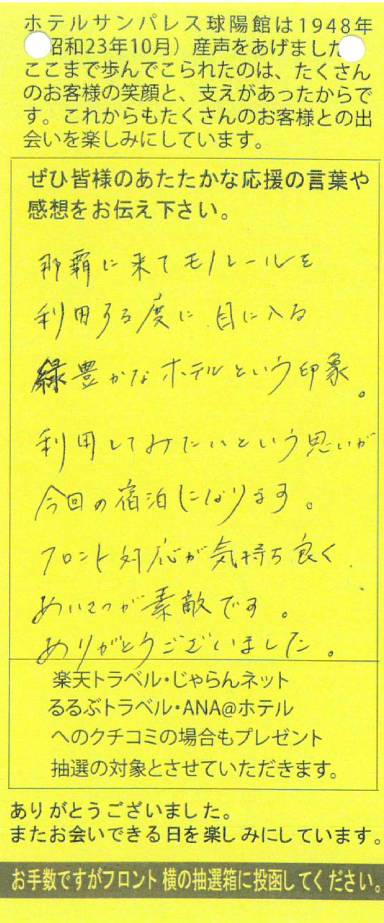 ホテルサンパレス球陽館は1948年
昭和23年10月）産声をあげました
ここまで歩んでこられたのは、たくさん
のお客様の笑顔と、支えがあったからで
す。これからもたくさんのお客様との出
会いを楽しみにしています。
ぜひ皆様のあたたかな応援の言葉や
感想をお伝え下さい。
那覇に来てモノレールを
利用する度に目に入る
緑豊かなホテルという印象。
利用してみたいという思いが
今回の宿泊になります。
フロント対応が気持ち良く
あいさつが素敵です。
ありがとうございました。
楽天トラベル・じゃらんネット
るるぶトラベル・ANA@ホテル
へのクチコミの場合もプレゼント
抽選の対象とさせていただきます。
ありがとうございました。
またお会いできる日を楽しみにしています。
お手数ですがフロント横の抽選箱に投函してください。